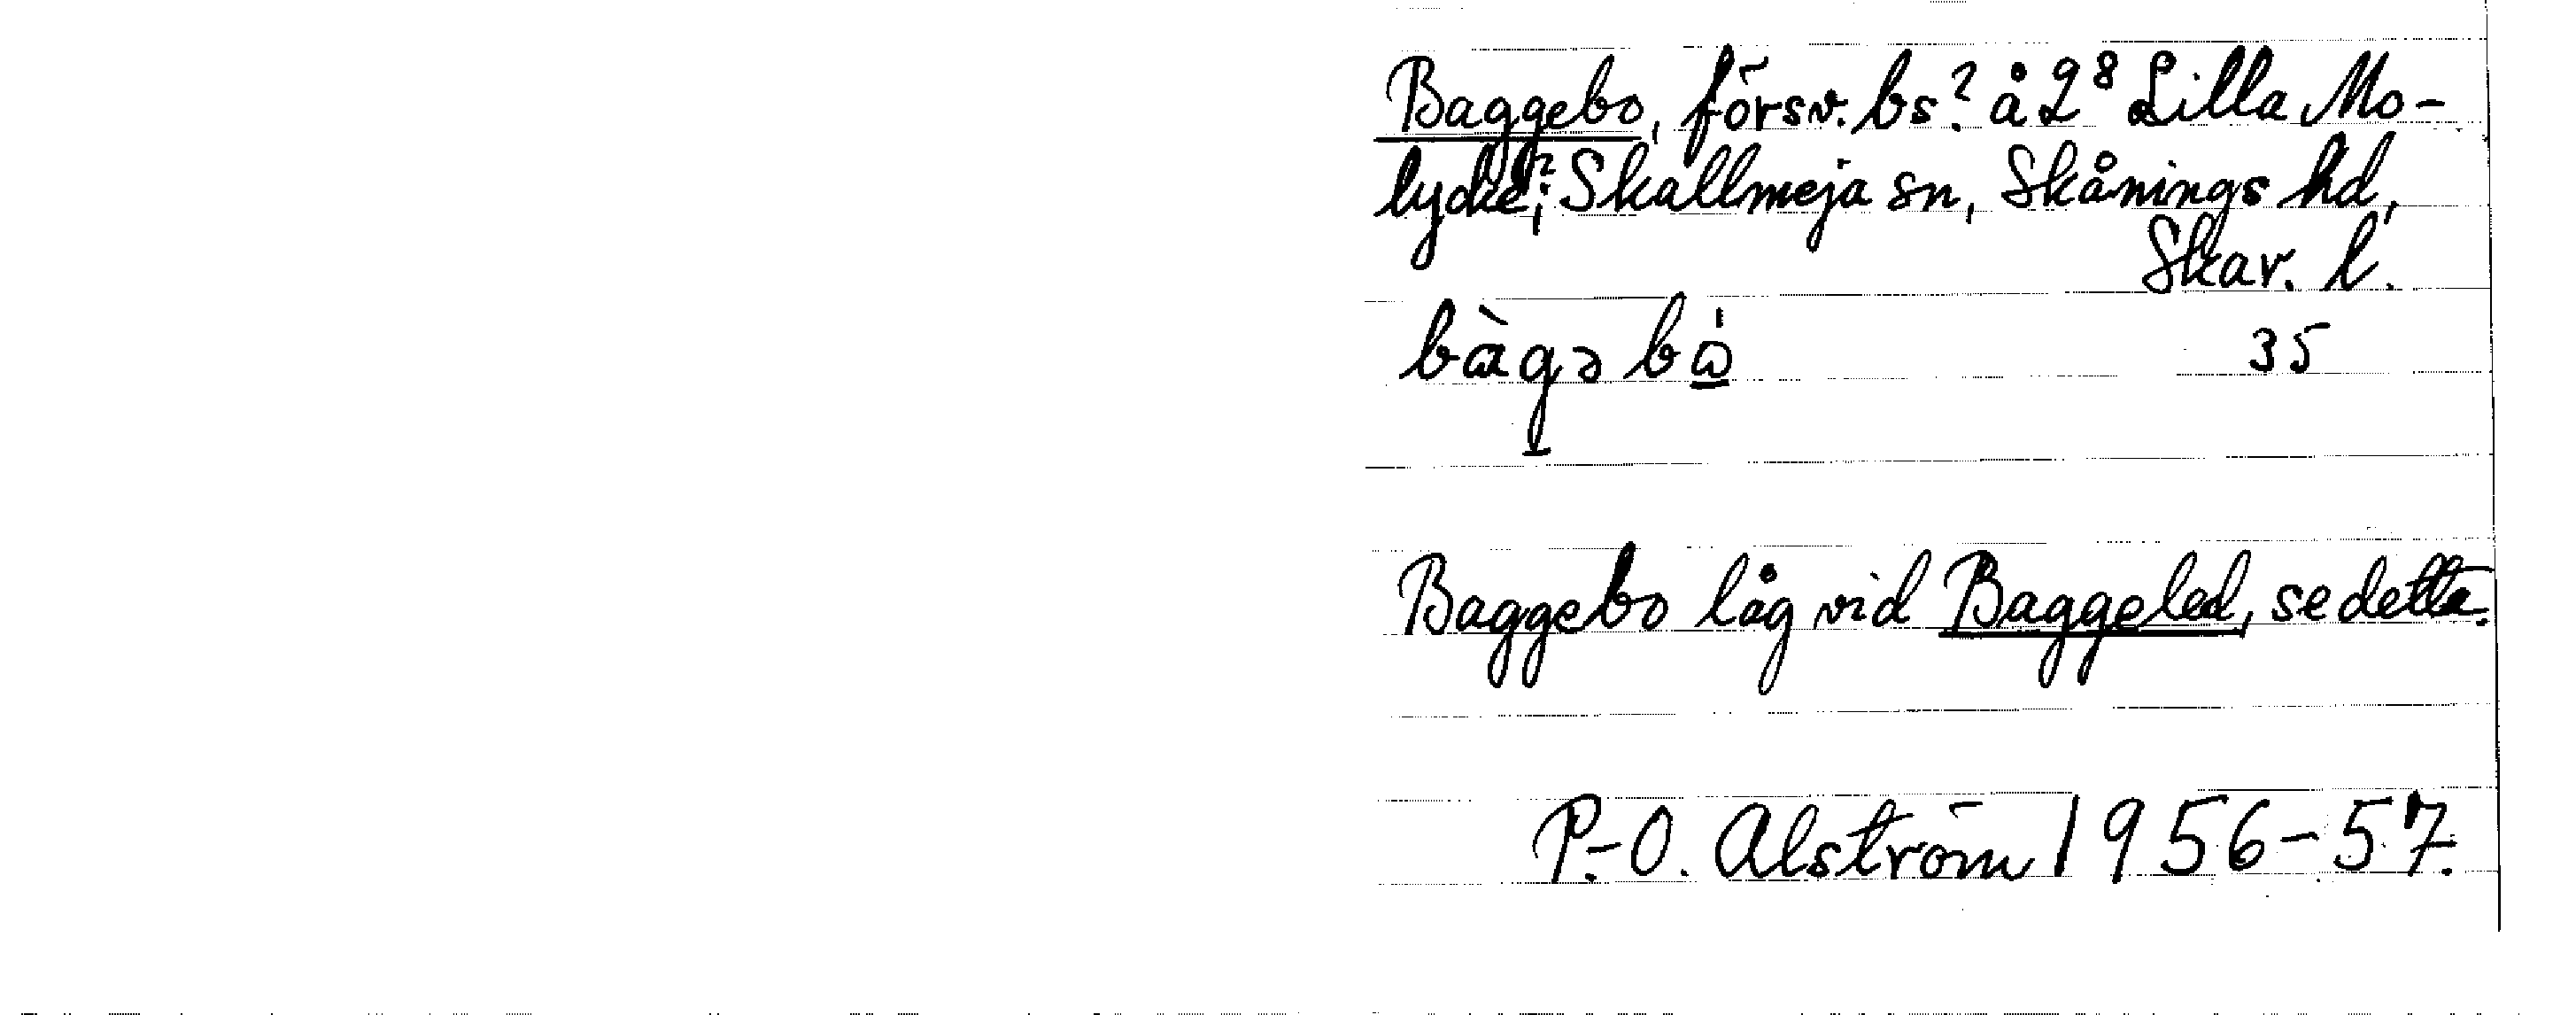 Baggebo, försv. bs? å 2⁸ Lilla Mo-
lycke?; Skallmeja sn, Skånings hd,
Skar. l.
35
Baggebo låg vid Baggeled, se detta.
P.-O. Alström 1956-57.